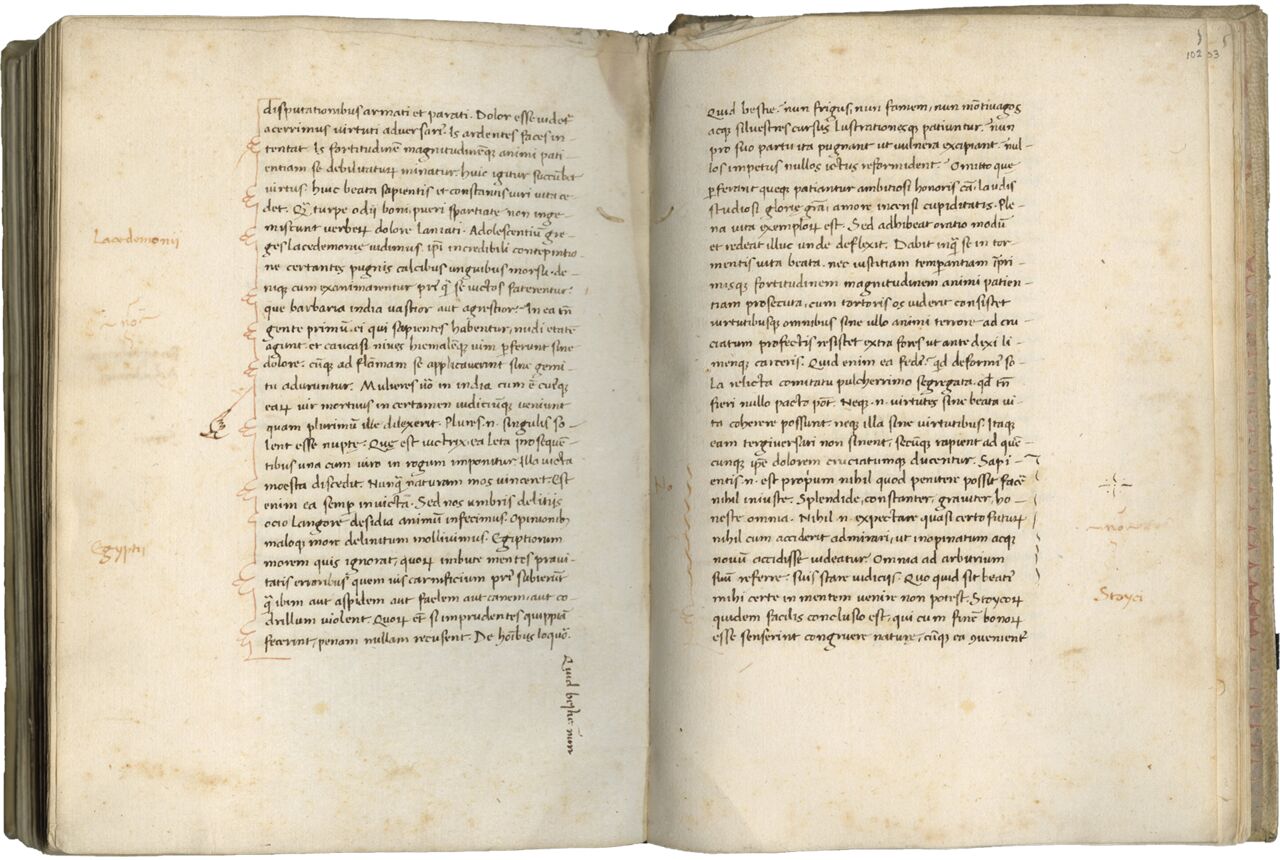 disputationibus armati et parati. Dolor esse videt̃
acerrimus virtuti adversari9. Is ardentes faces in-
tentat. Is fortitudinẽ magnitudinẽq animi pati-
entiam se debilitaturꝝ minatur. huic igitur succũbet
virtus. huic beata sapientis et constantis viri vita ce-
det. Q̃ turpe o dii boni. pueri spartiatę non inge-
miscunt verberꝝ dolore laniati. Adolescentiũ gre-
ges lacedemonę vidimus. ip̃i incredibili contẽptio-
ne certantes pugnis calcibus unguibus morsu. de-
nique cum exanimarentur pri9 q̃ se victos faterentur.
quę barbaria india vastior aut agrestior. In ea tñ
gente primũ. ei qui sapientes habentur, nudi etatẽ
agunt. et caucasi nives hiemalẽq vim p̱ferunt sine
dolore. cũq ad flãmam se applicaverint sine gemi-
tu aduruntur. Mulieres ṽo in india cum ẽ cui9q
earꝝ vir mortuus in certamen iudiciũq veniunt
quam plurimũ ille dilexerit. Plures .n. singulis so-
lent esse nuptę. Quę est victrix. ea lęta prosequẽ-
tibus una cum viro in rogum imponitur. illa victa
moesta discedit. Nunq̃ naturam mos vinceret. Est
enim ea semp̱ invicta. Sed nos umbris delitiis
ocio langore desidia animũ infecimus. Opinionib9
maloq more delinitum mollivimus. Egiptiorum
morem quis ignorat, quorꝝ imbutę mentes pravi-
tatis erroribus quem vis carnificium pri9 subierint
q̃ ibim aut aspidem aut faelem aut canem, aut co-
drillum violent. Quorꝝ eť si imprudentes quippiã
fecerint, penam nullam recusent. De hoĩbus loquõr.
Quid bestię nũm
Lacedemonii
no
Egyptii
102 53
Quid bestię. nun frigus, nun famem, nun mõtivagos
acq silvestres cursus lustrationesq patiuntur. nun
pro suo partu ita pugnant ut vulnera excipiant. nul-
los impetus nullos ictus reformident. Omitto que
p̱ferant queq patiantur ambitiosi honoris cã. laudis
studiosi glorię grã, amore incensi cupiditatis. Ple-
na vita exemplorꝝ est. Sed adhibeat oratio modũ
et redeat illuc unde deflexit. Dabit inq̃ se in tor-
mentis vita beata. nec iustitiam temperantiam ĩpri-
misq fortitudinem magnitudinem animi patien-
tiam prosecuta, cum tortoris os viderit consistet
virtutibusq omnibus sine ullo animi terrore ad cru-
ciatum profectis resistet extra fores ut ante dixi li-
menq carceris. Quid enim ea fedi9. qd deformi9 so-
la relicta comitatu pulcherrimo segregata. qd tñ
fieri nullo pacto põt. Neq .n. virtutes sine beata vi-
ta coherere possunt. neq illa sine virtutibus. Itaq
eam tergiversari non sinent, secũq rapient ad que-
cunq ip̃e dolorem cruciatumq ducentur. Sapi-
entis .n. est propriũ nihil quod penitere possit facẽ
nihil iniuste. Splendide, constanter, graviter, ho-
neste omnia. Nihil .n. expectare quasi certo futurꝝ
nihil cum acciderit admirari, ut inopinatum acq
novũ accidisse videatur. Omnia ad arbitrium
suũ referre. suis stare iudiciis. Quo quid sit beati9
mihi certe in mentem venire non potest. Stoycorꝝ
quidem facilis conclusio est, qui cum finẽ bonorꝝ
esse senserint congruere naturę, cũq ea 9venient̃
no
Stoyci